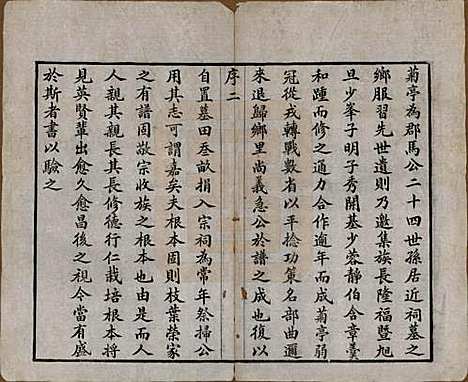 菊亭為郡馬公二十四世孫居近祠墓之
鄉服習先世遺則乃邀集族長隆福暨旭
旦少峯子明子秀開基少蓉靜伯含章羹
和踵而修之通力合作逾年而成菊亭弱
冠從戎轉戰數省以平捻功策名部曲邇
來退歸鄉里尚義急公於譜之成也復以
序二
自置墓田叁畝捐入宗祠為常年祭掃公
用其志可謂嘉矣夫根本固則枝葉榮家
之有譜固敬宗收族之根本也由是而人
人親其親長其長修德行仁栽培根本將
見英賢輩出愈久愈昌後之視今當有盛
於斯者書以驗之